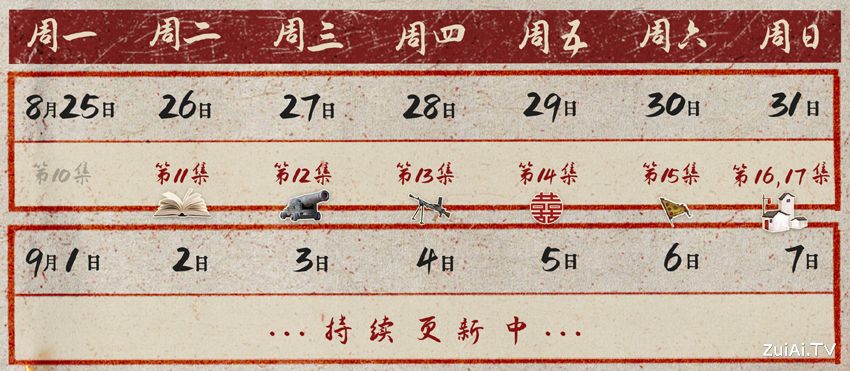 周一 周二 周三 周四 周五 周六 周日
8月25日 26日 27日 28日 29日 30日 31日
第10集 第11集 第12集 第13集 第14集 第15集 第16,17集
囍
9月1日 2日 3日 4日 5日 6日 7日
...持续更新中...
ZuiAi.TV